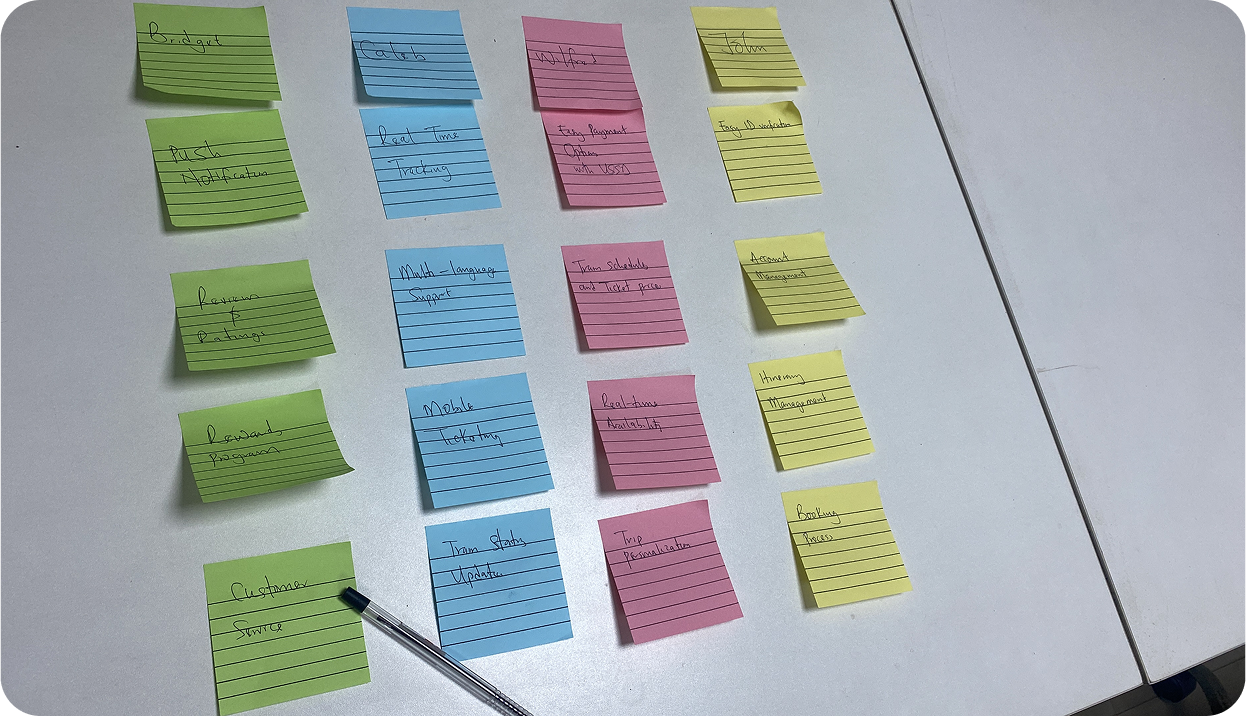 Bridgut
Push
Notification
Reviews
&
Ratings
Rewards
Program
Customer
Service
Caleb
Real Time
Tracking
Multi-language
Support
Mobile
Ticketing
Train Status
Update
Wilfred
Easy Payment
Options
with USSD
Train schedule
and Ticket price
Real-time
Availability
Trip
personalization
John
Easy ID verification
Account
Management
Itinerary
Management
Booking
Process